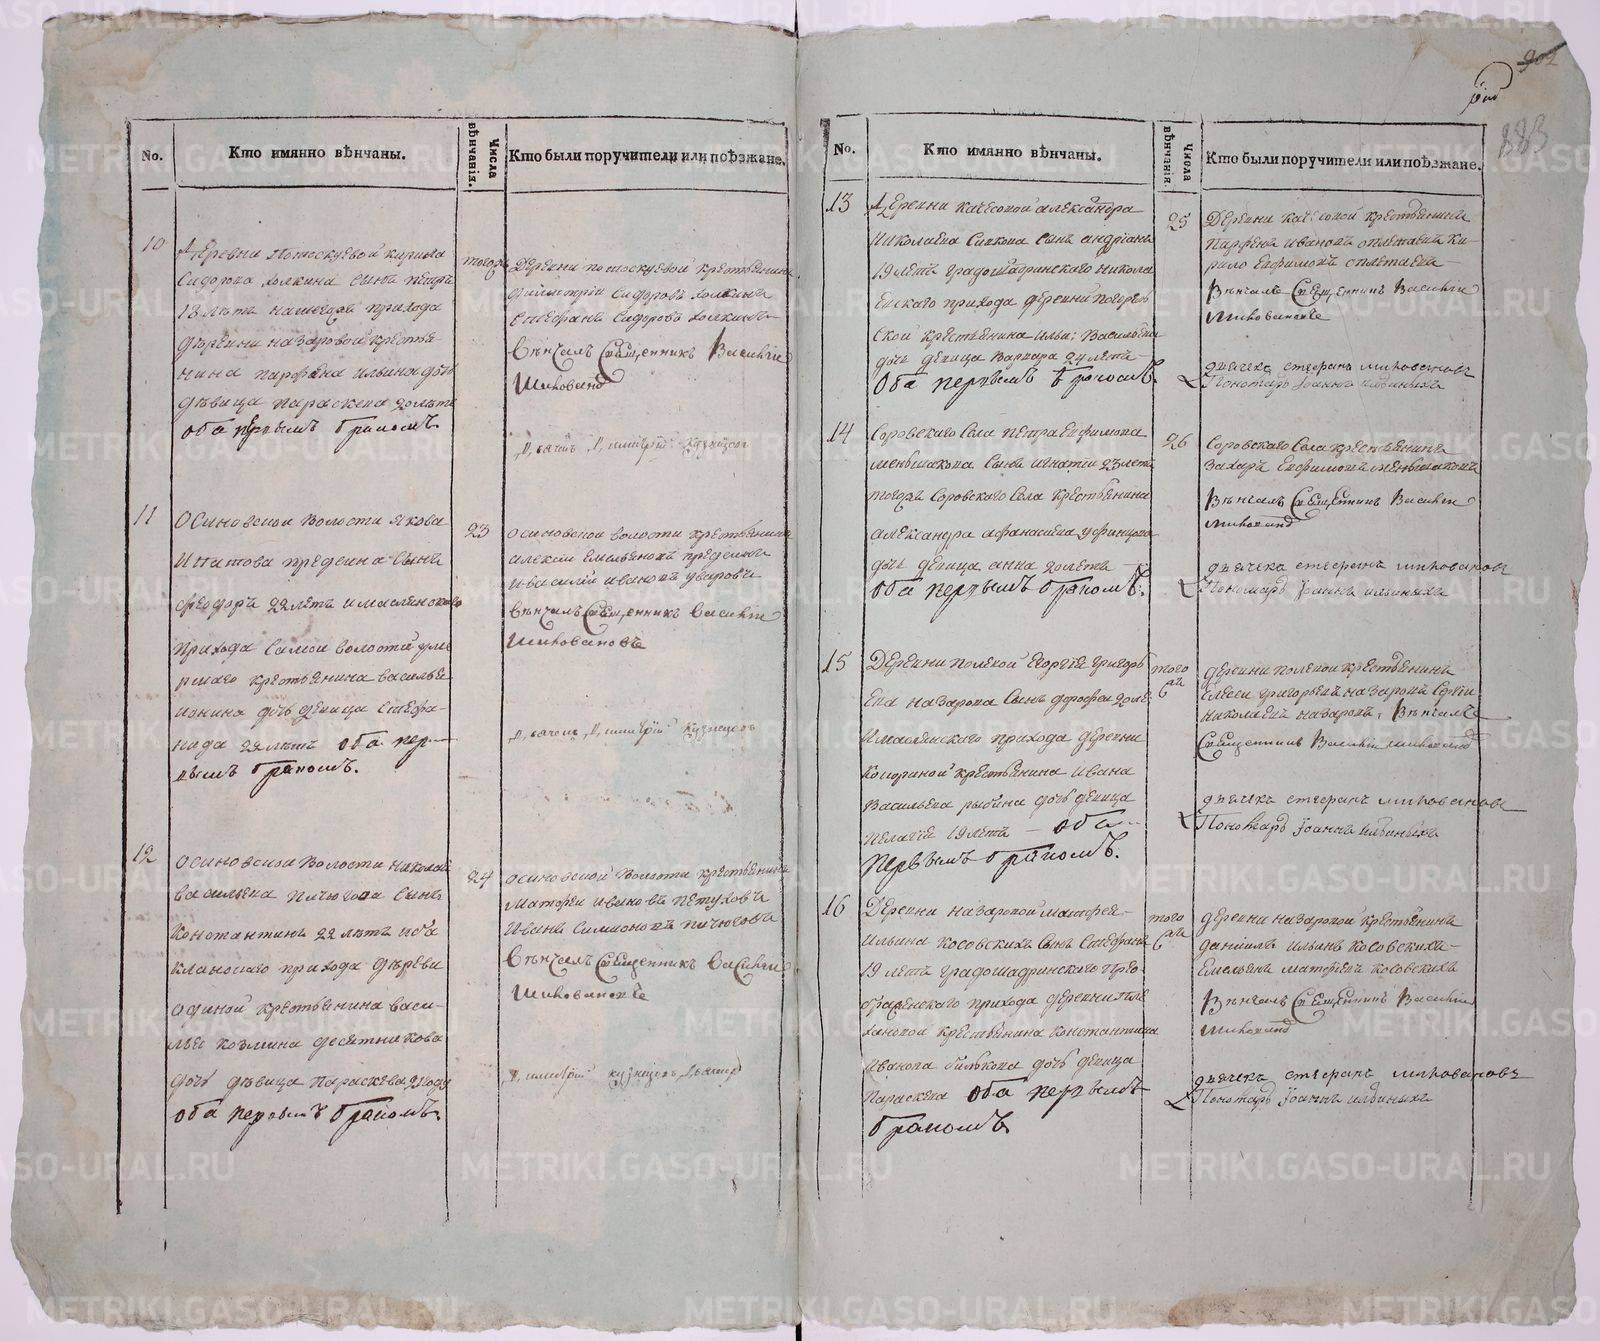 902
883
No.
Кто имянно вѣнчаны.
Числа вѣнчанія.
Кто были поручители или поѣзжане.
10
Деревни Потоскуевой кирила
Сидорова холкина сынъ петръ
18 лѣтъ нашегожъ прихода
деревни назаровой крестья
нина парфена ильина дочь
дѣвица параскева 20 лѣтъ
оба первымъ бракомъ.
тогожъ
Деревни потоскуевой крестьянинъ
Димитрій Сидоровъ холкинъ
Стефанъ Сидоровъ холкинъ
Вѣнчалъ Священникъ Василіи
Дьячекъ Димитрій Кузнецовъ
11
Осиновской волости Якова
Ипатова предеина сынъ
феодоръ 22 лѣтъ и маслянского
прихода самой волости уме
ршаго крестьянина василья
ионина дочь девица стефа-
нида 22 лѣтъ оба пер-
вымъ бракомъ.
23
осиновской волости крестьянинъ
алексіи Емельяновъ предеинъ
и василіи ивановъ уваровъ
Вѣнчалъ Священникъ Василіи
Дьячекъ Димитрій Кузнецовъ
12
осиновской волости николая
васильева пичюгова сынъ
константинъ 22 лѣтъ и ба
клановскаго прихода деревни
крестьянина васи-
лья козмина десятникова
дочь дѣвица параскева 21 году
оба первымъ бракомъ.
24
осиновской волости крестьянинъ
Матфеи ивановъ петуховъ
Иванъ Симионовъ пичюговъ
Вѣнчалъ Священникъ Василіи
Димитрій кузнецовъ Дьячекъ
No.
Кто имянно вѣнчаны.
Числа вѣнчанія.
Кто были поручители или поѣзжане.
13
Деревни качесовой александра
николаева сынъ андріанъ
19 летъ градошадринскаго никола
евскаго прихода деревни погорель
ской крестьянина ильи Васильева
дочь девица варвара 24 летъ-
Оба первымъ бракомъ.
25
Деревни качесовой крестьянинъ
парфенъ ивановъ Ки-
рило Евфимовъ
Вѣнчалъ Священникъ Василіи
дьячекъ стефанъ
Пономарь Іоаннъ ильиныхъ
14
Соровскаго Села петра Евфимова
меньшакова сынъ игнатіи 23 летъ
тогожъ Соровскаго Села крестьянина
александра афанасьева уфинцова
дочь девица анна 20 летъ
оба первымъ бракомъ.
26
Соровскаго Села крестьянинъ
Захаръ Евфимовъ меньшаковъ
Вѣнчалъ Священникъ Василіи
дьячекъ стефанъ
Пономарь Іоаннъ ильиныхъ
15
Деревни полевой георгіе григорь
ева назарова сынъ
и маслянского прихода деревни
крестьянина ивана
Васильева рыбина дочь девица
пелагіе 19 летъ — оба
первымъ бракомъ.
того
деревни полевой крестьянинъ
Елесеи григорьевъ назаровъ Сергіи
николаевъ назаровъ. Вѣнчалъ
Священникъ Василіи
дьячекъ стефанъ
Пономарь Іоаннъ ильиныхъ
16
Деревни назаровой матфея
ильина косовскихъ сынъ стефанъ
19 летъ градошадринскаго прео-
браженскаго прихода деревни
крестьянина константина
Иванова дочь девица
параскева оба первымъ
бракомъ.
того
деревни назаровой крестьянинъ
даниилъ ильинъ косовскихъ-
Емельянъ матфеевъ косовскихъ
Вѣнчалъ Священникъ Василіи
дьячекъ стефанъ
Пономарь Іоаннъ ильиныхъ
METRIKI.GASO-URAL.RU